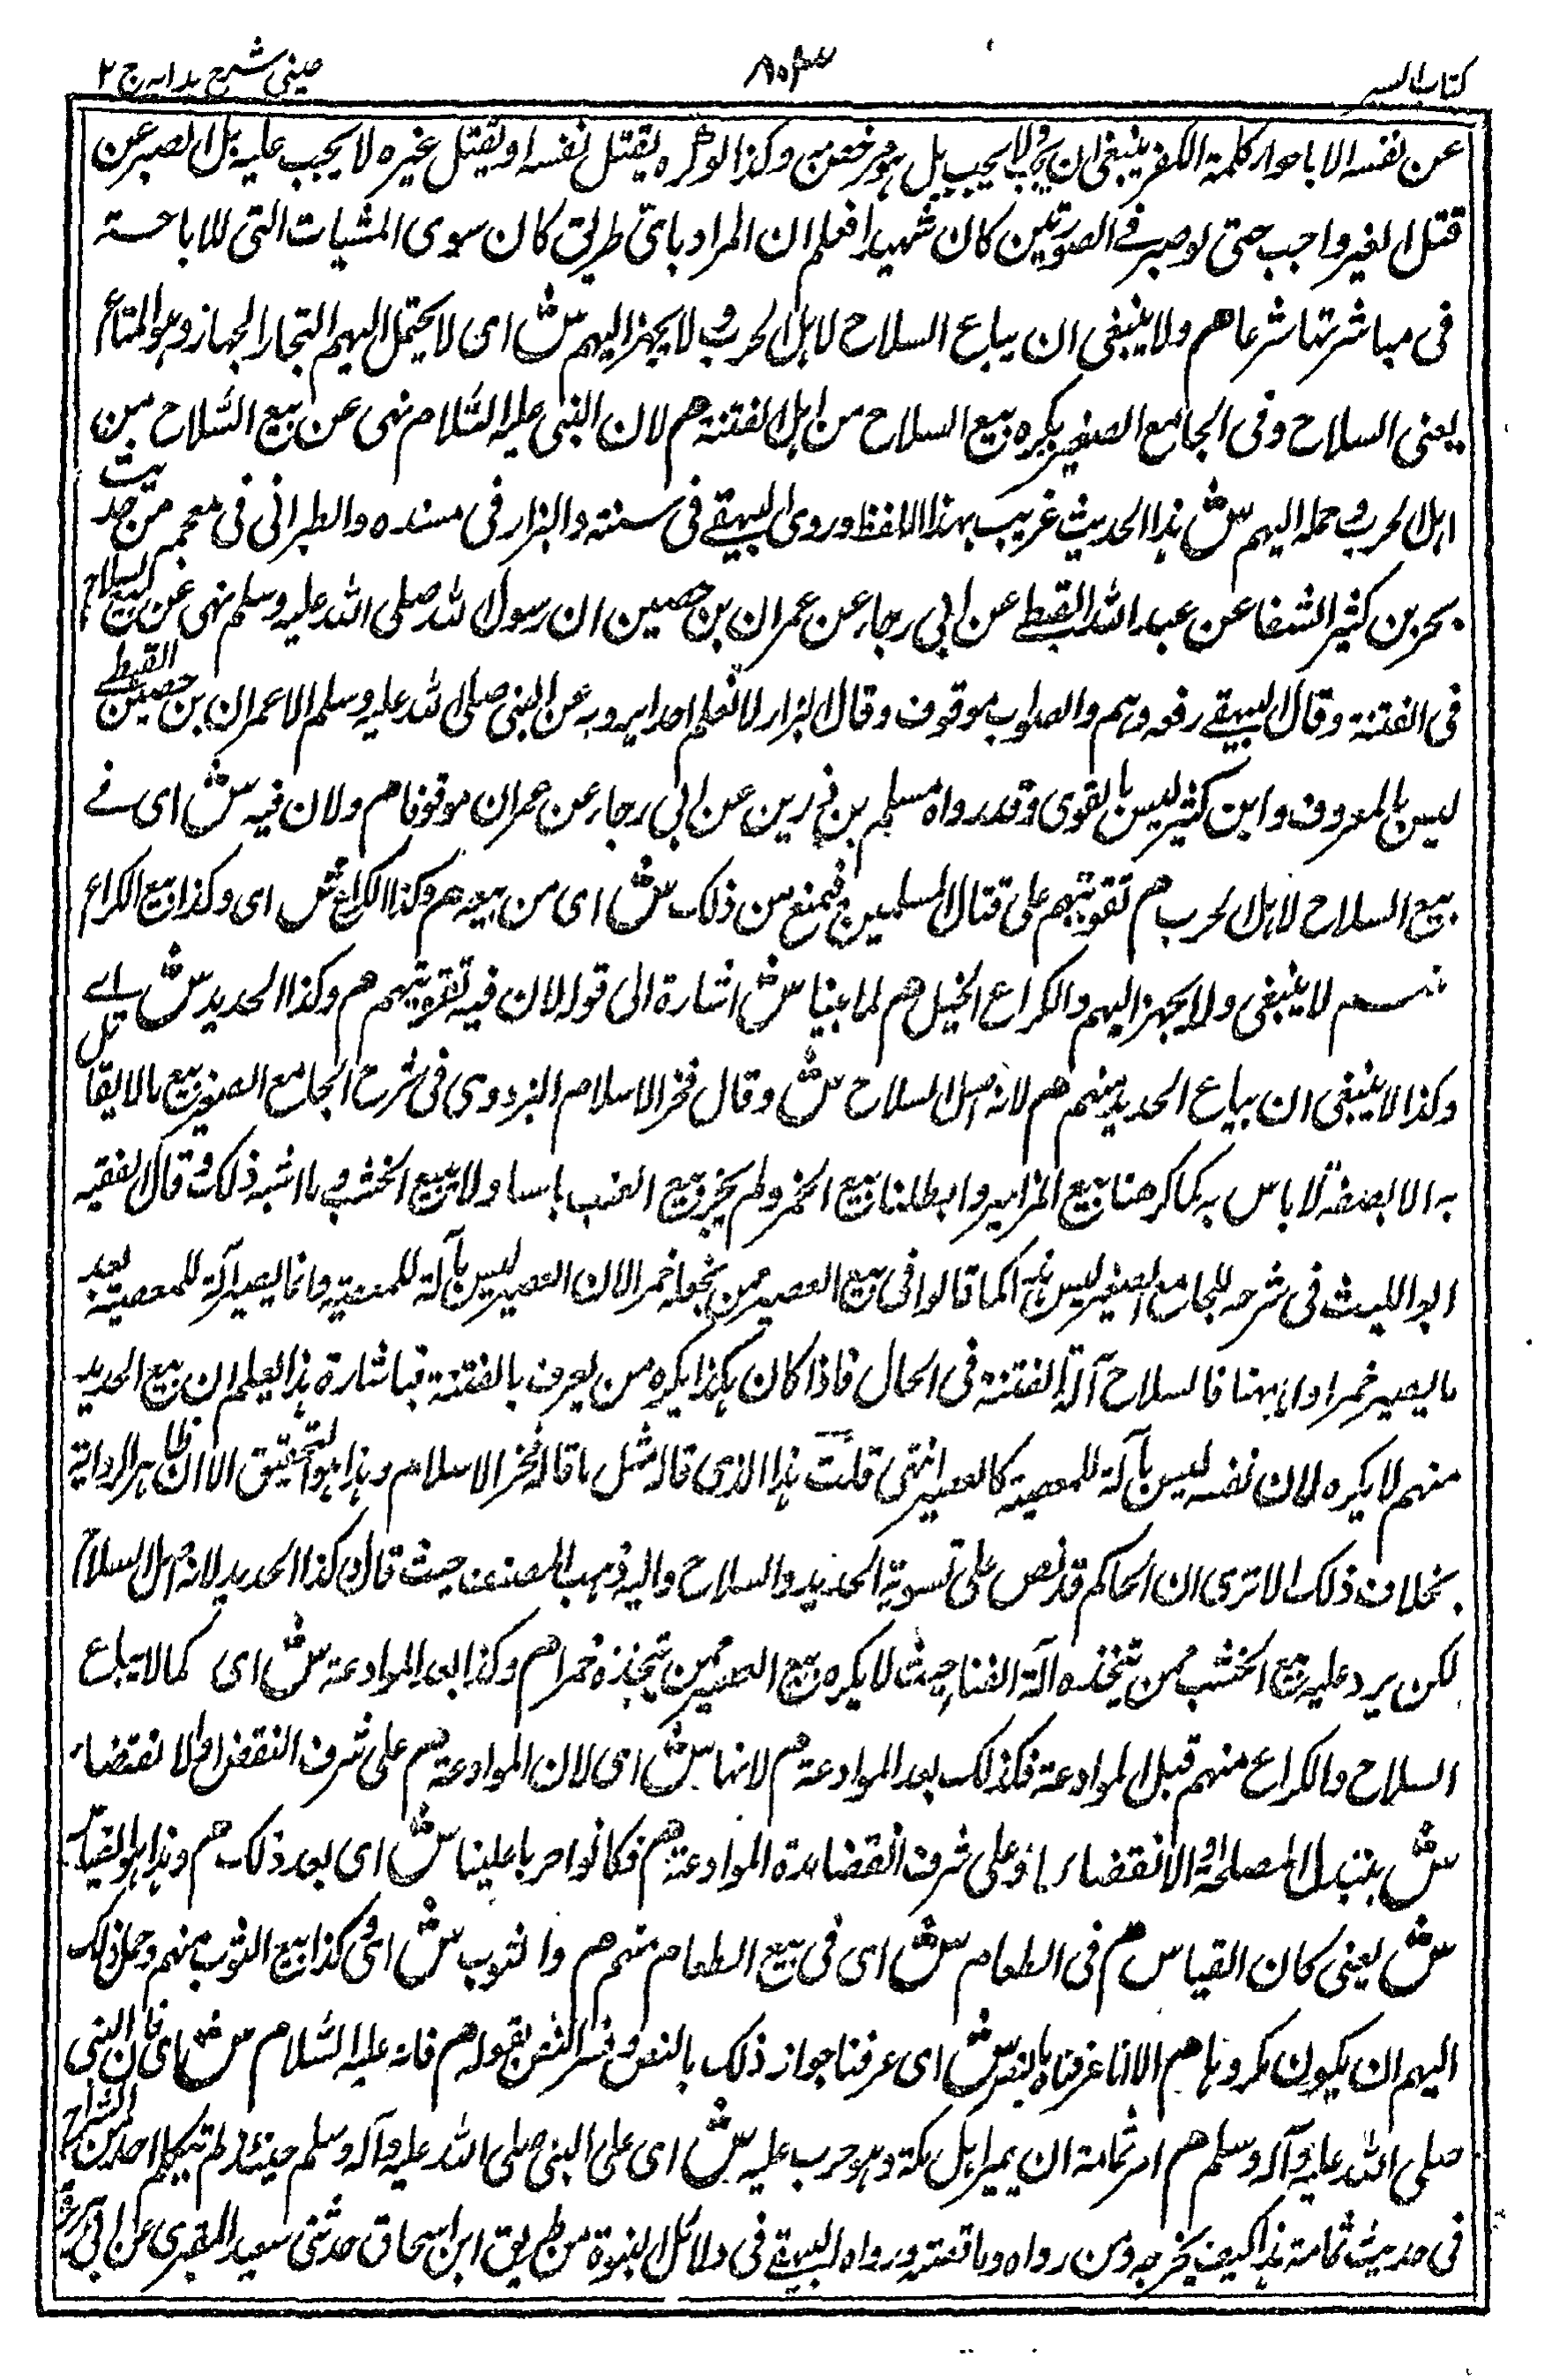 كتاب السير
٨٠٣
عينى شرح هدايه ج ٢
عن نفسه الا باجراء كلمة الكفر ينبغى ان يجب ولا يجب بل هو مرخص به وكذا لو اكره يقتل نفسه او يقتل غيره لا يجب عليه بل الصبر عن
قتل الغير واجب حتى لو صبر فى الصورتين كان شهيدا فعلم ان المراد باى طريق كان سوى المشيات التى للاباحة
فى مباشرتها شرعا هم ولا ينبغى ان يباع السلاح لاهل الحرب ولا يجهز اليهم ش اى لا يحمل اليهم التجار الجهاز وهو المتاع
يعنى السلاح وفى الجامع الصغير يكره بيع السلاح من اهل الفتنة هم لان النبى عليه السلام نهى عن بيع السلاح من
اهل الحرب وحمله اليهم ش هذا الحديث غريب بهذا اللفظ وروى البيهقى فى سننه والبزار فى مسنده والطبرانى فى معجمه من حديث
بحر بن كثير الشفا عن عبد الله القبطى عن ابى رجاء عن عمران بن حصين ان رسول الله صلى الله عليه وسلم نهى عن بيع السلاح
فى الفتنة وقال البيهقى رفعه وهم والصواب موقوف وقال البزار لا نعلم احدا يرويه عن النبى صلى الله عليه وسلم الا عمران بن حصين القبطى
ليس بالمعروف وابن كثير ليس بالقوى وقد رواه مسلم بن زرين عن ابى رجاء عن عمران موقوفا هم ولان فيه ش اى فى
بيع السلاح لاهل الحرب هم تقويتهم على قتال المسلمين فيمنع من ذلك ش اى من بيعه هم وكذا الكراع ش اى وكذا بيع الكراع
لا ينبغى ولا يجهز اليهم والكراع الخيل هم لما بينا ش اشارة الى قوله لان فيه تقويتهم هم وكذا الحديد ش اے
وكذا لا ينبغى ان يباع الحديد منهم هم لانه اصل السلاح ش وقال فخر الاسلام البزدوى فى شرح الجامع الصغير بيع مالا يقاتل
به الا بصنعة لا باس به كما كرهنا بيع المزامير وابطلنا بيع الخمر ولم يجز بيع العنب باسا ولا بيع الخشب وما اشبه ذلك وقال الفقيه
ابو الليث فى شرحه للجامع الصغير ليس هذا كما قالوا فى بيع العصير ممن يجعله خمرا لان العصير ليس بآلة للمعصية وانما يصير آلة للمعصية بعد
ما يصير خمرا واما ههنا فالسلاح آلة الفتنة فى الحال فاذا كان هكذا يكره من يعرف بالفتنة فباشارة هذا يعلم ان بيع الحديد
منهم لا يكره لان نفسه ليس بآلة للمعصية كالعصير انتهى قلت هذا الذى قاله مثل ما قاله فخر الاسلام وهذا هو التحقيق الا ان ظاهر الرواية
بخلاف ذلك الا ترى ان الحاكم قد نص على تسوية الحديد والسلاح واليه ذهب المصنف حيث قال وكذا الحديد لانه اصل السلاح
لكن يرد عليه بيع الخشب ممن يتخذه آلة الغناء حيث لا يكره بيع العصير ممن يتخذه خمرا هم وكذا بعد الموادعة ش اى كما لا يباع
السلاح والكراع منهم قبل الموادعة فكذلك بعد الموادعة هم لانها ش اى لان الموادعة هم على شرف النقض او الانقضاء
ش بنتبدل المصلحة او الانقضاء وعلى شرف انقضاء مدة الموادعة هم فكانوا حربا علينا ش اى بعد ذلك هم وهذا هو القياس
ش يعنى كان القياس هم فى الطعام ش اى فى بيع الطعام منهم هم والثوب ش اى وكذا بيع الثوب منهم وحمل ذلك
اليهم ان يكون مكروها هم الا انا عرفناه بالنص ش اى عرفنا جواز ذلك بالنص وفسر النص بقوله هم فانه عليه السلام ش اى فان النبى
صلى الله عليه وآله وسلم هم امر ثمامة ان يمير اهل مكة وهو حرب عليه ش اى على النبى صلى الله عليه وآله وسلم حينئذ ولم يتكلم احد من الشراح
فى حديث ثمامة هذا كيف يخرجه ومن رواه وما قصته ورواه البيهقى فى دلائل النبوة من طريق ابن اسحاق حدثنى سعيد المقبرى عن ابى هريرة